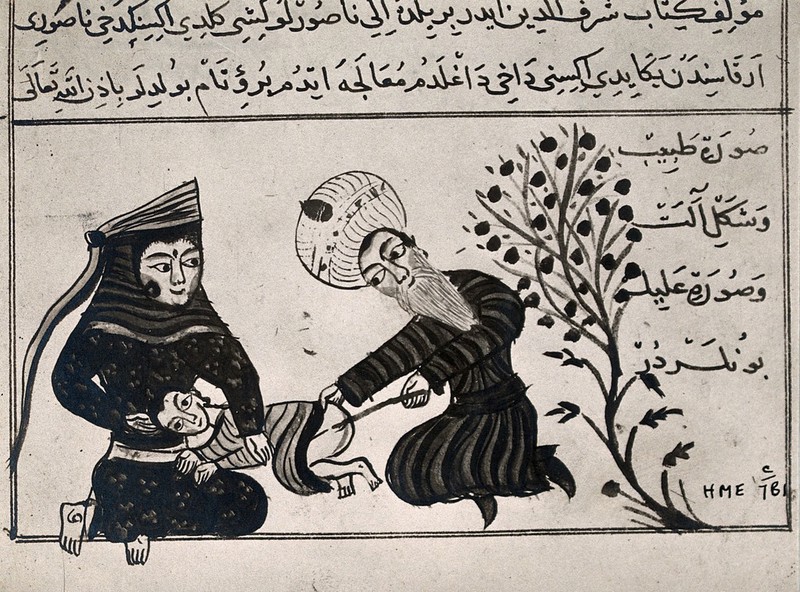 مؤلف كتاب شرف الدين ايدر بر يلدن الى ناصورلو كشى كلدى اكسنكدخى ناصورى
ارقاسندن يكايدى اكسنى داخى داغلدم معالجه ايتدم برؤ تام بولديلر باذن الله تعالى
صورة طبيب
وشكل آلت
وصورة عليل
بونلردر
HME